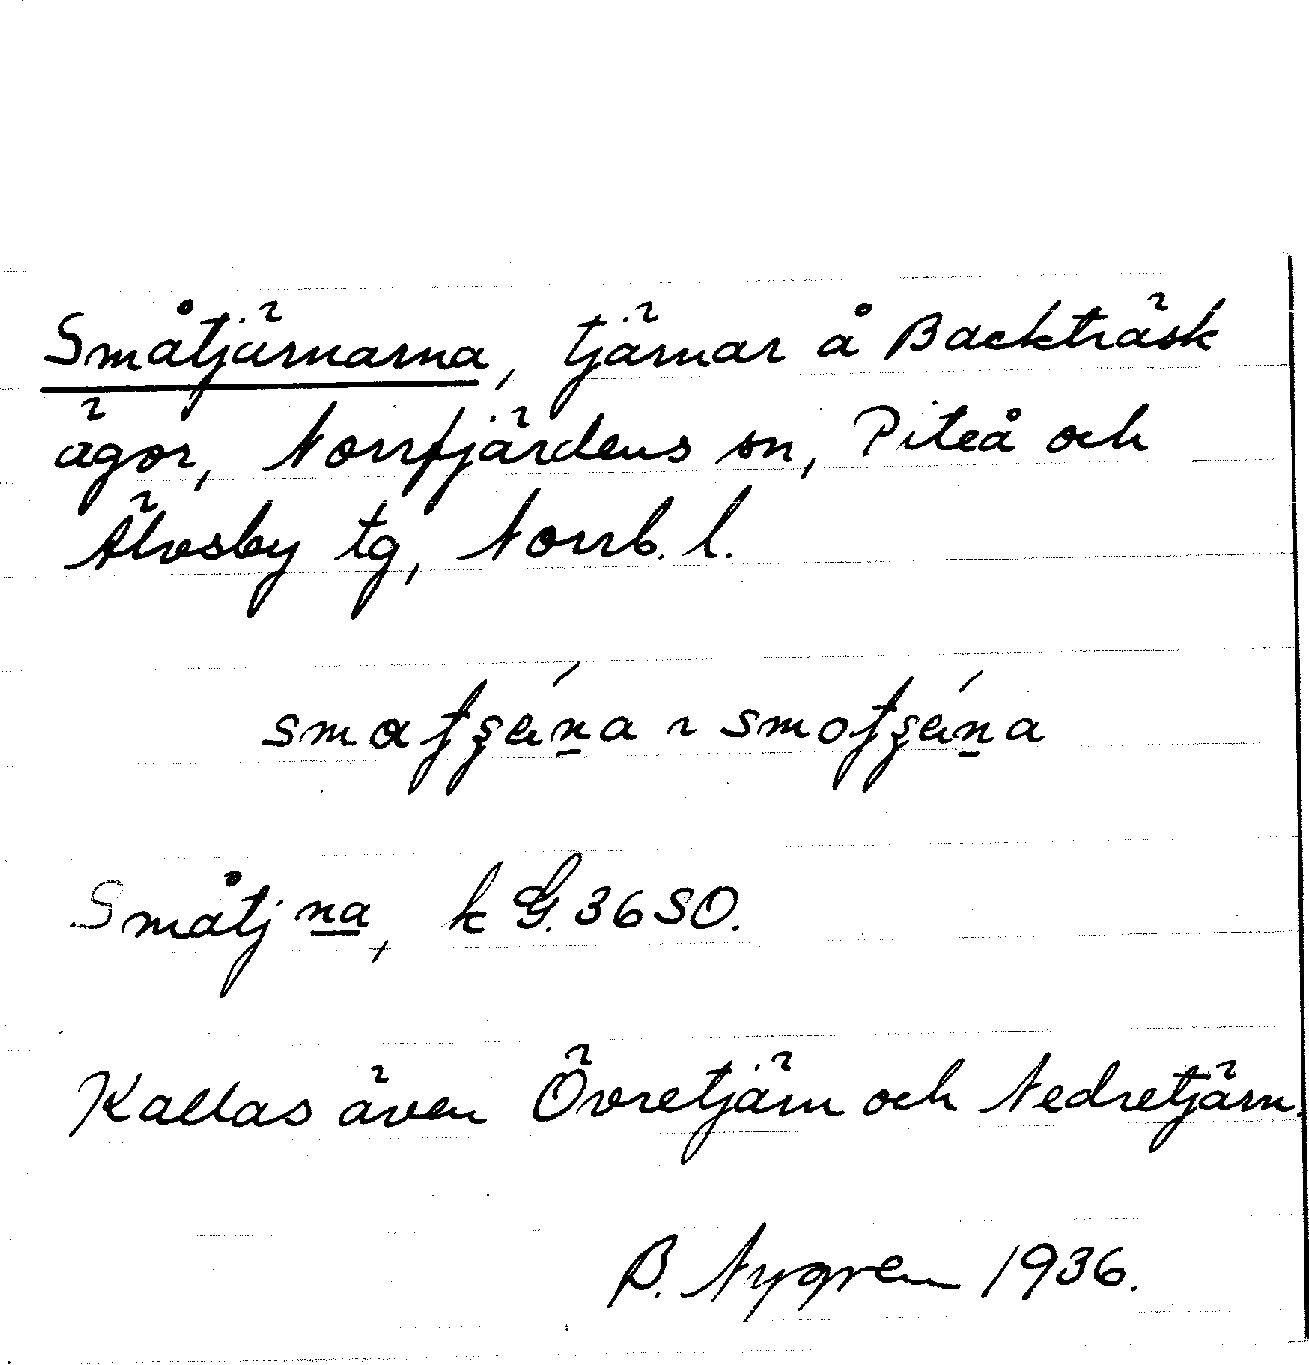 Småtjärnarna, tjärnar å Backträsk
ägor, Norrfjärdens sn, Piteå och
Älvsby tg, Norrb. l.
Småtjna, k G. 36 SO.
Kallas även Övretjärn och Nedretjärn.
B. Nygren 1936.